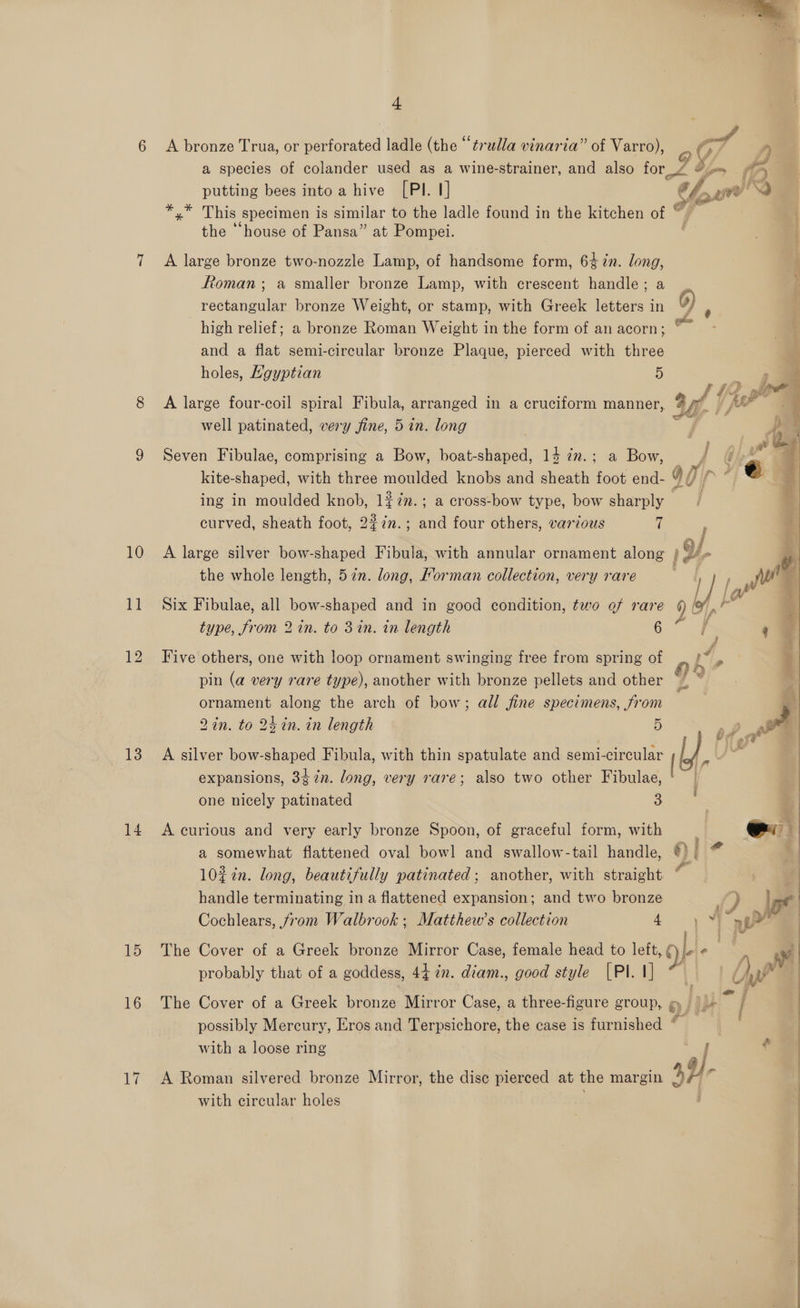 4
6 A bronze Trua, or perforated ladle (the “trulla vinaria” of Varro),
a species of colander used as a wine-strainer, and also for
putting bees into a hive [Pl. I]
*⁎* This specimen is similar to the ladle found in the kitchen of
the “house of Pansa” at Pompei.
7 A large bronze two-nozzle Lamp, of handsome form, in. long,
Roman; a smaller bronze Lamp, with crescent handle; a
rectangular bronze Weight, or stamp, with Greek letters in
high relief; a bronze Roman Weight in the form of an acorn;
and a flat semi-circular bronze Plaque, pierced with three
holes, Egyptian 5
8 A large four-coil spiral Fibula, arranged in a cruciform manner,
well patinated, very fine, 5 in. long
9 Seven Fibulae, comprising a Bow, boat-shaped, in.; a Bow,
kite-shaped, with three moulded knobs and sheath foot end-
ing in moulded knob, 1¾ in.; a cross-bow type, bow sharply
curved, sheath foot, 2¾ in.; and four others, various 7
10 A large silver bow-shaped Fibula, with annular ornament along
the whole length, 5 in. long, Forman collection, very rare
11 Six Fibulae, all bow-shaped and in good condition, two of rare
type, from 2 in. to 3 in. in length 6
12 Five others, one with loop ornament swinging free from spring of
pin (a very rare type), another with bronze pellets and other
ornament along the arch of bow; all fine specimens, from
2 in. to 2½ in. in length 5
13 A silver bow-shaped Fibula, with thin spatulate and semi-circular
expansions, in. long, very rare; also two other Fibulae,
one nicely patinated 3
14 A curious and very early bronze Spoon, of graceful form, with
a somewhat flattened oval bowl and swallow-tail handle,
10¾ in. long, beautifully patinated; another, with straight
handle terminating in a flattened expansion; and two bronze
Cochlears, from Walbrook; Matthew's collection 4
15 The Cover of a Greek bronze Mirror Case, female head to left,
probably that of a goddess, in. diam., good style [Pl. I]
16 The Cover of a Greek bronze Mirror Case, a three-figure group,
possibly Mercury, Eros and Terpsichore, the case is furnished
with a loose ring
17 A Roman silvered bronze Mirror, the disc pierced at the margin
with circular holes